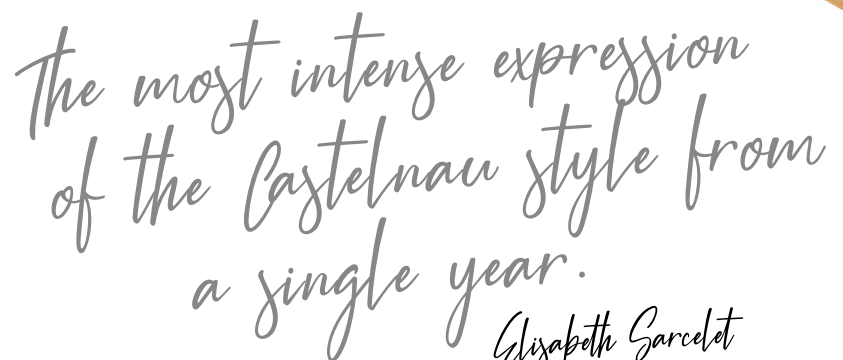 The most intense expression
of the Castelnau style from
a single year.
Elisabeth Sarcelet